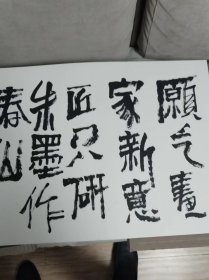 願乞畫
家新意
匠只研
朱墨作
春山